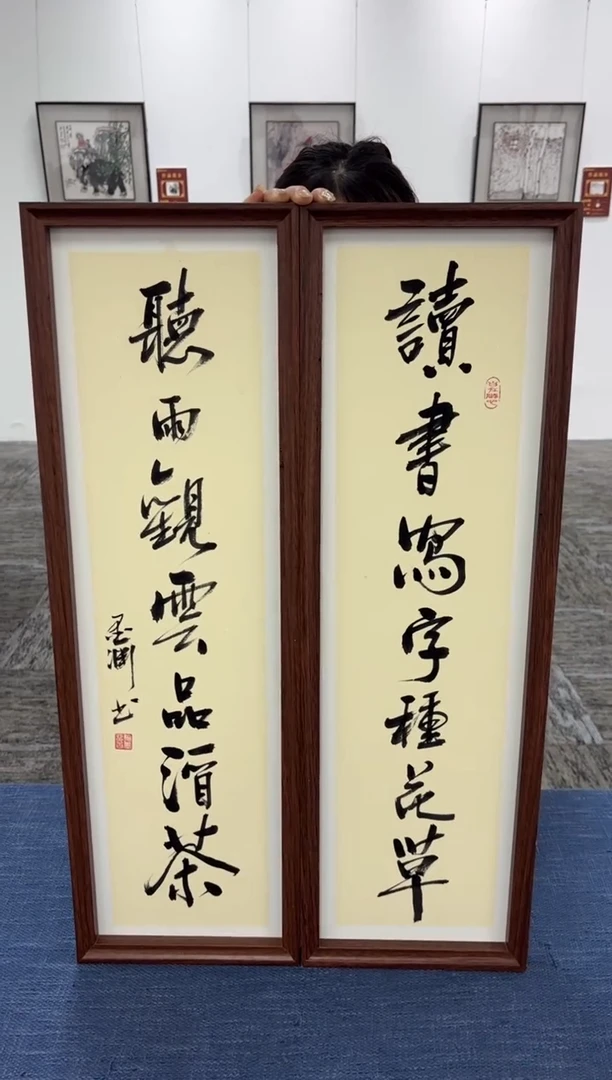 讀書寫字種花草
聽雨觀雲品酒茶
墨淵书